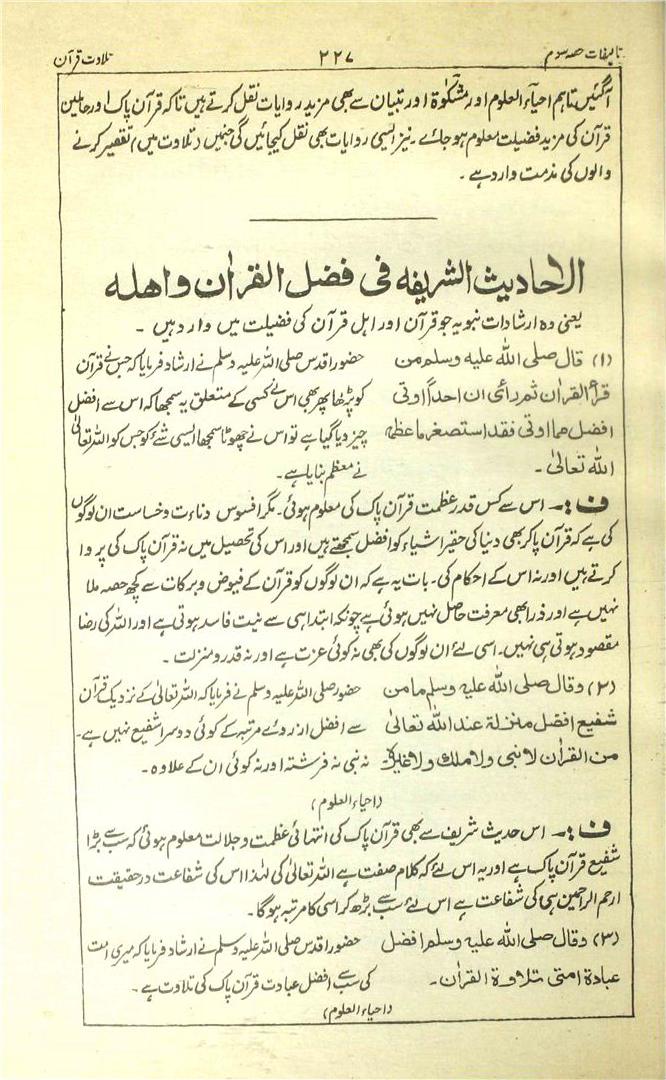 تالیفات حصہ سوم ۲۲۷ تلاوت قرآن
آگئیں تاہم احیآء العلوم اور مشکوٰۃ اور تبیان سے بھی مزید روایات نقل کرتے ہیں تاکہ قرآن پاک اور حاملین
قرآن کی مزید فضیلت معلوم ہو جائے ۔ نیز ایسی روایات بھی نقل کیجائیں گی جنہیں (تلاوت میں) تقصیر کرنے
والوں کی مذمت وارد ہے ۔
الاحادیث الشریفه فی فضل القراٰن واهله
یعنی وہ ارشادات نبویہ جو قرآن اور اہل قرآن کی فضیلت میں وارد ہیں ۔
(۱) قال صلی الله علیه وسلم من
قرأ القراٰن ثم رأی ان احداً اوتی
افضل مما اوتی فقد استصغر ما عظمه
الله تعالیٰ ۔
حضور اقدس صلی اللہ علیہ وسلم نے ارشاد فرمایا کہ جس نے قرآن
کو پڑھا پھر بھی اس نے کسی کے متعلق یہ سمجھا کہ اس سے افضل
چیز دیا گیا ہے تو اس نے چھوٹا سمجھا ایسی شئے کو جس کو اللہ تعالیٰ
نے معظم بنایا ہے۔
ف :۔ اس سے کس قدر عظمت قرآن پاک کی معلوم ہوئی۔ مگر افسوس دناءت وخساست ان لوگوں
کی ہے کہ قرآن پاکر بھی دنیا کی حقیر اشیاء کو افضل سمجھتے ہیں اور اس کی تحصیل میں نہ قرآن پاک کی پروا
کرتے ہیں اور نہ اس کے احکام کی۔ بات یہ ہے کہ ان لوگوں کو قرآن کے فیوض وبرکات سے کچھ حصہ ملا
نہیں ہے اور ذرا بھی معرفت حاصل نہیں ہوئی ہے چونکہ ابتدا ہی سے نیت فاسد ہوتی ہے اور اللہ کی رضا
مقصود ہوتی ہی نہیں۔ اسی لئے ان لوگوں کی بھی نہ کوئی عزت ہے اور نہ قدر ومنزلت ۔
(۲) وقال صلی الله علیه وسلم ما من
شفیع افضل منزلة عند الله تعالیٰ
من القراٰن لا نبی ولا ملك ولا غیره
حضور صلی اللہ علیہ وسلم نے فرمایا کہ اللہ تعالیٰ کے نزدیک قرآن
سے افضل از روئے مرتبہ کے کوئی دوسرا شفیع نہیں ہے۔
نہ نبی نہ فرشتہ اور نہ کوئی ان کے علاوہ ۔
(احیاء العلوم)
ف :۔ اس حدیث شریف سے بھی قرآن پاک کی انتہائی عظمت وجلالت معلوم ہوئی کہ سب سے بڑا
شفیع قرآن پاک ہے اور یہ اس لئے کہ کلام صفت ہے اللہ تعالیٰ کی لہٰذا اس کی شفاعت درحقیقت
ارحم الراحمین ہی کی شفاعت ہے اس لئے سب سے بڑھ کر اسی کا مرتبہ ہوگا۔
(۳) وقال صلی الله علیه وسلم افضل
عبادة امتی تلاوة القراٰن ۔
حضور اقدس صلی اللہ علیہ وسلم نے ارشاد فرمایا کہ میری امت
کی سب سے افضل عبادت قرآن پاک کی تلاوت ہے ۔
(احیاء العلوم)